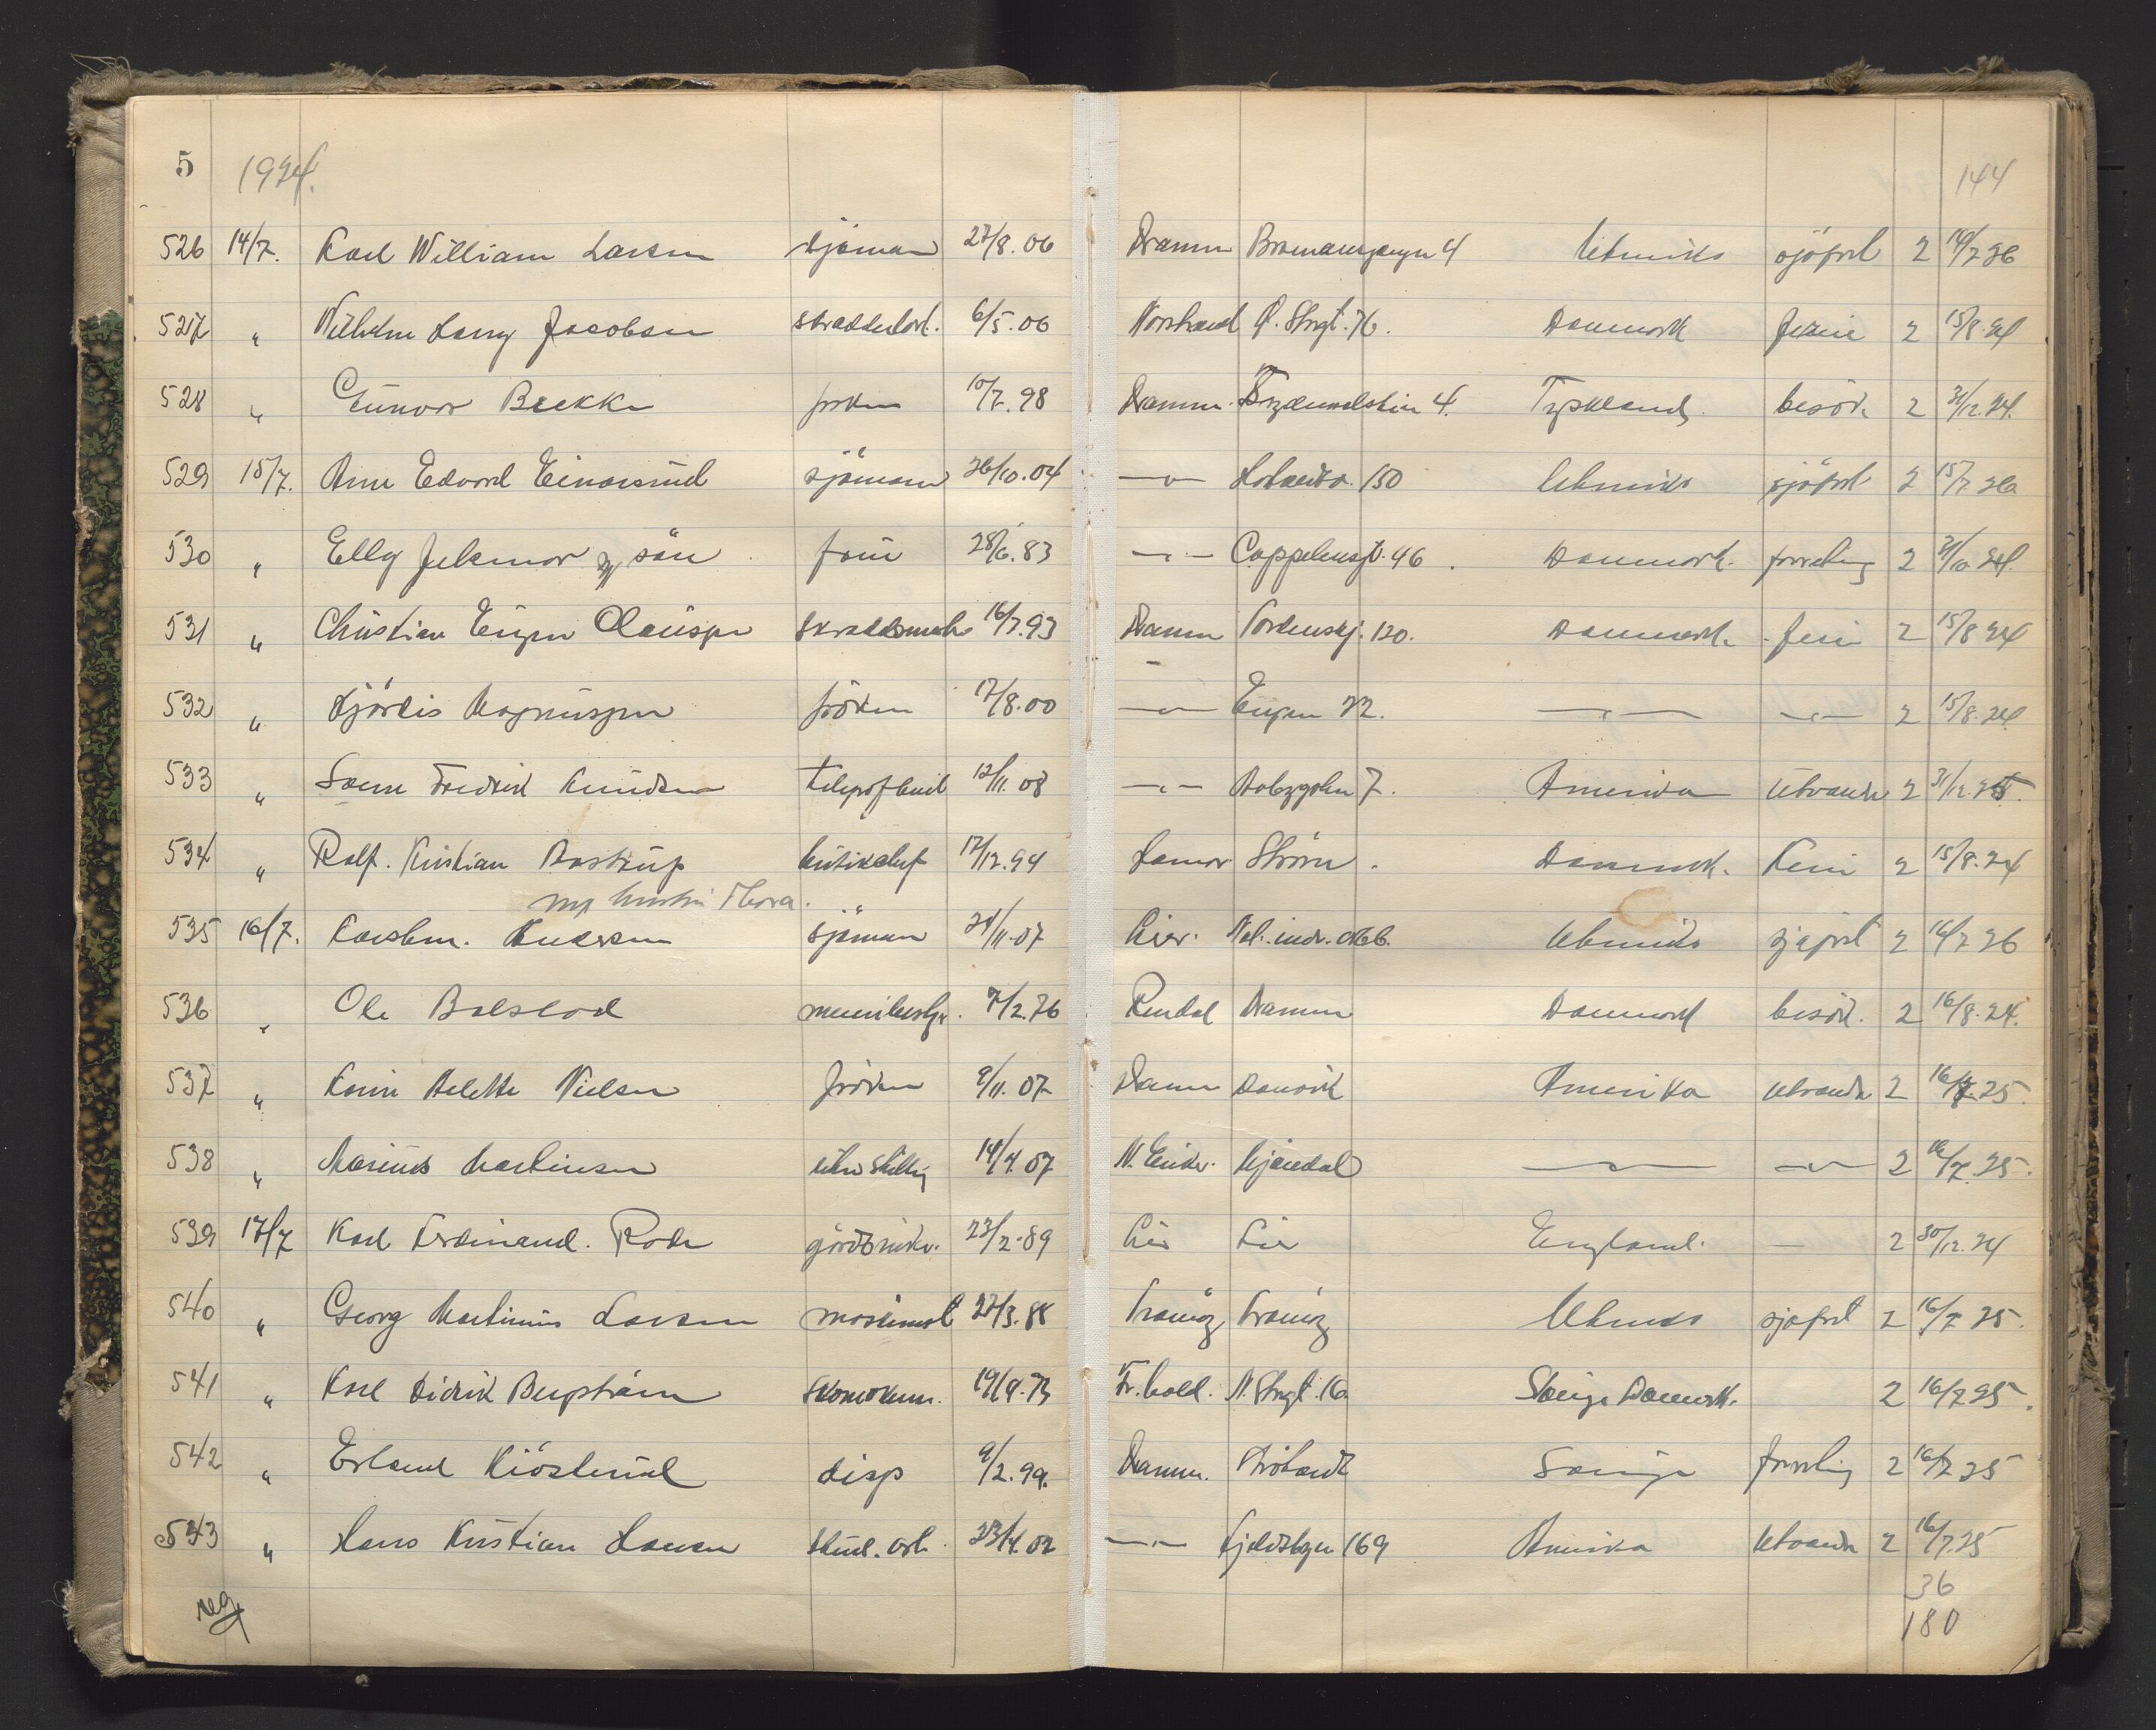 5 1924. 144
526 14/7. Karl William Larsen sjøman 27/8.06 Dramm Bromansgangen 4 Utenriks sjöfart 2 14/7 26
527 " Wilhelm Harry Jacobsen skrædderlærl. 6/5.06 Norstrand Ø. Strgt. 76. Danmark ferie 2 15/8.24
528 " Gunvor Brekke frøken 10/7.98 Dramm. 4. Tyskland besök 2 31/12.24.
529 15/7. Arne Edvard Einarsrud sjöman 26/10.04 —"— 150 Utenriks sjöfart 2 15/7 26
530 " Elly Jelsmor og sön frue 28/6.83 —"— Cappelensgt. 46. Danmark. forretning 2 31/10 24.
531 " Christian Eugen Clausen 16/7.93 Dramm Tordenskj. 120. Danmark. ferie 2 15/8 24
532 " Hjördis Magnussen fröken 17/8.00 —"— Engen 72. —"— —"— 2 15/8.24
533 " Fredrik Knudsen telegrafbud 12/11.08 —"— 7. Amerika Utvandr 2 31/12.25.
534 " Rolf. Kristian Aastrup butikchef 17/12.94 Strøm. Danmark. Ferie 2 15/8.24
og hustru Thora.
535 16/7. Karsten. Andersen sjöman 24/11.07 Lier. Utenriks sjøfart 2 16/7 26
536 " Ole Bolstad 7/2.76 Dramm Danmark besök. 2 16/8.24.
537 " Karin Helette Nielsen fröken 9/11.07 Dramm Danvik Amerika Utvandr 2 16/7.25.
538 " Marius Martinsen uten stilling 14/4.07 N. Eiker. Mjøndal —"— —"— 2 16/7.25.
539 17/7 Karl Ferdinand. Rode gårdbruker. 23/2.89 Lier Lier England. — 2 30/12.24
540 " Georg Martinius Larsen maskinist 27/3.88 Utenriks sjøfart 2 16/7 25.
541 " Karl Didrik Bergstrøm skomakerm. 19/9.73 Fr.hald. N. Strgt. 16 Sverige Danmark. 2 16/7 25.
542 " Erland Kiöslerud disp 9/2.99. Dramm. Sverige forretning 2 16/7 25
543 " Hans Kristian Hansen 23/4.02 —"— 169 Amerika Utvandr 2 16/7.25
36
reg 180